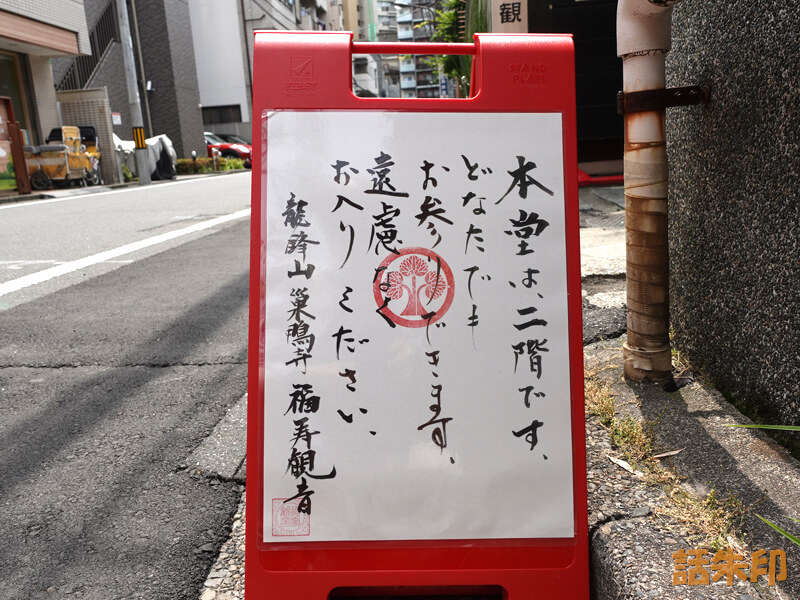 観
FIRST
STAND
PLATE
本堂は、二階です、
どなたでも
お参りできます、
遠慮なく
お入りください、
龍峰山 巣鴨寺 福寿観音
話朱印